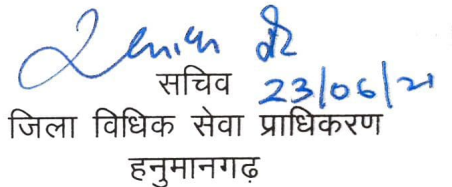 सचिव 23/06/21
जिला विधिक सेवा प्राधिकरण
हनुमानगढ़